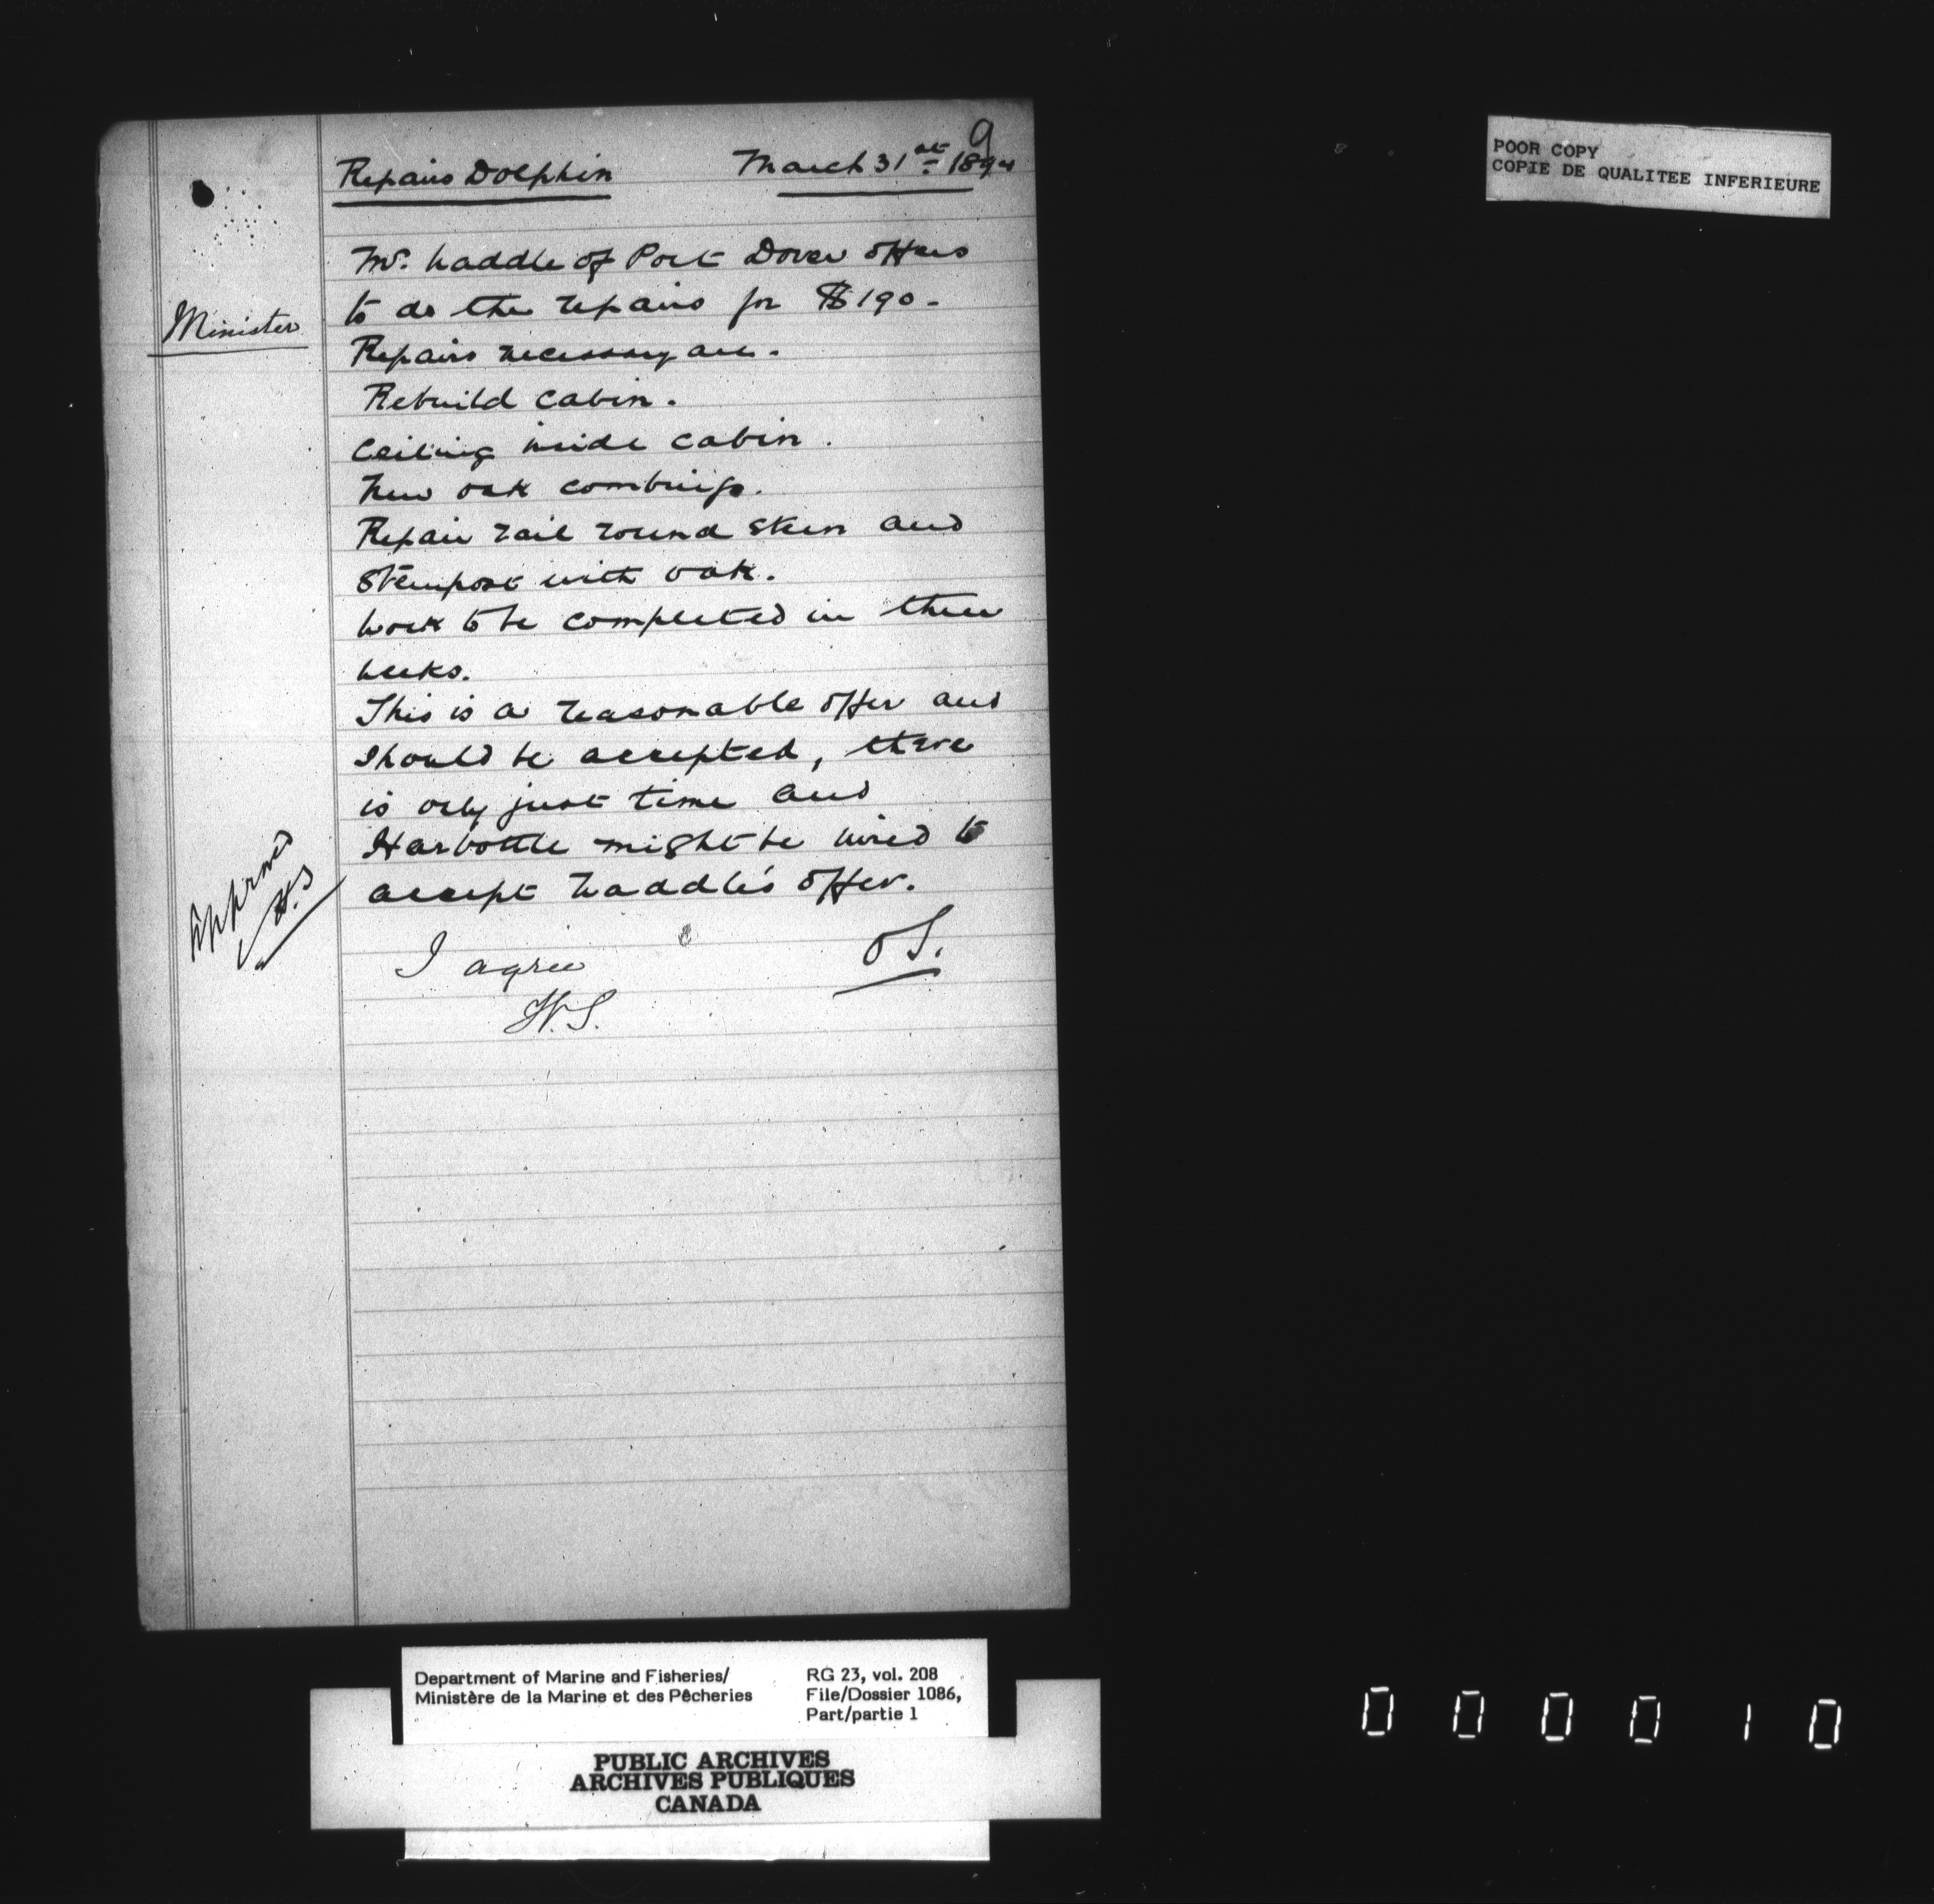 9
Repairs Dolphin March 31st 1894
Mr. Waddle of Port Dover offers
to do the repairs for $190-
Minister
Repairs necessary are.
Rebuild cabin.
Ceiling inside cabin.
New oak combings.
Repair rail round stern and
Stempost with oak.
Work to be completed in three
weeks.
This is a reasonable offer and
should be accepted, there
is only just time and
Harbottle might be wired to
accept Waddle's offer.
Approved
I agree
OS.
POOR COPY
COPIE DE QUALITEE INFERIEURE
Department of Marine and Fisheries/
Ministère de la Marine et des Pêcheries
RG 23, vol. 208
File/Dossier 1086,
Part/partie 1
PUBLIC ARCHIVES
ARCHIVES PUBLIQUES
CANADA
000010